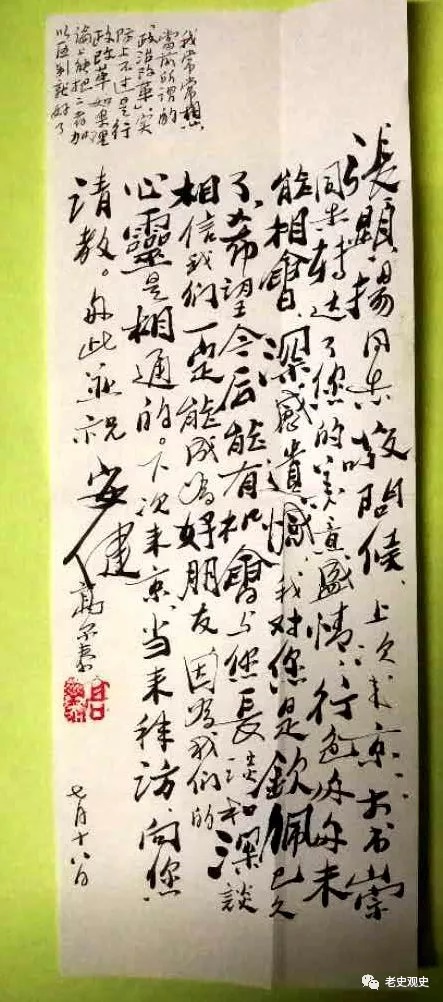 張顯揚同志敬問候、上次来京、方书崇
同志转达了您的美意盛情、行色匆匆未
能相會、深感遺憾、我对您是欽佩已久
了、希望今后能有机會与您長谈和深談
相信我们一定能成为好朋友 因为我们的
心靈是相通的。下次来京、当来拜访、向您
請教。专此並祝
安健
高尔泰
七月十八日
我常常想
当前所谓的
"政治改革"实
际上不过是行
政改革 如果理
论上能把二者加
以区别就好了
老史观史